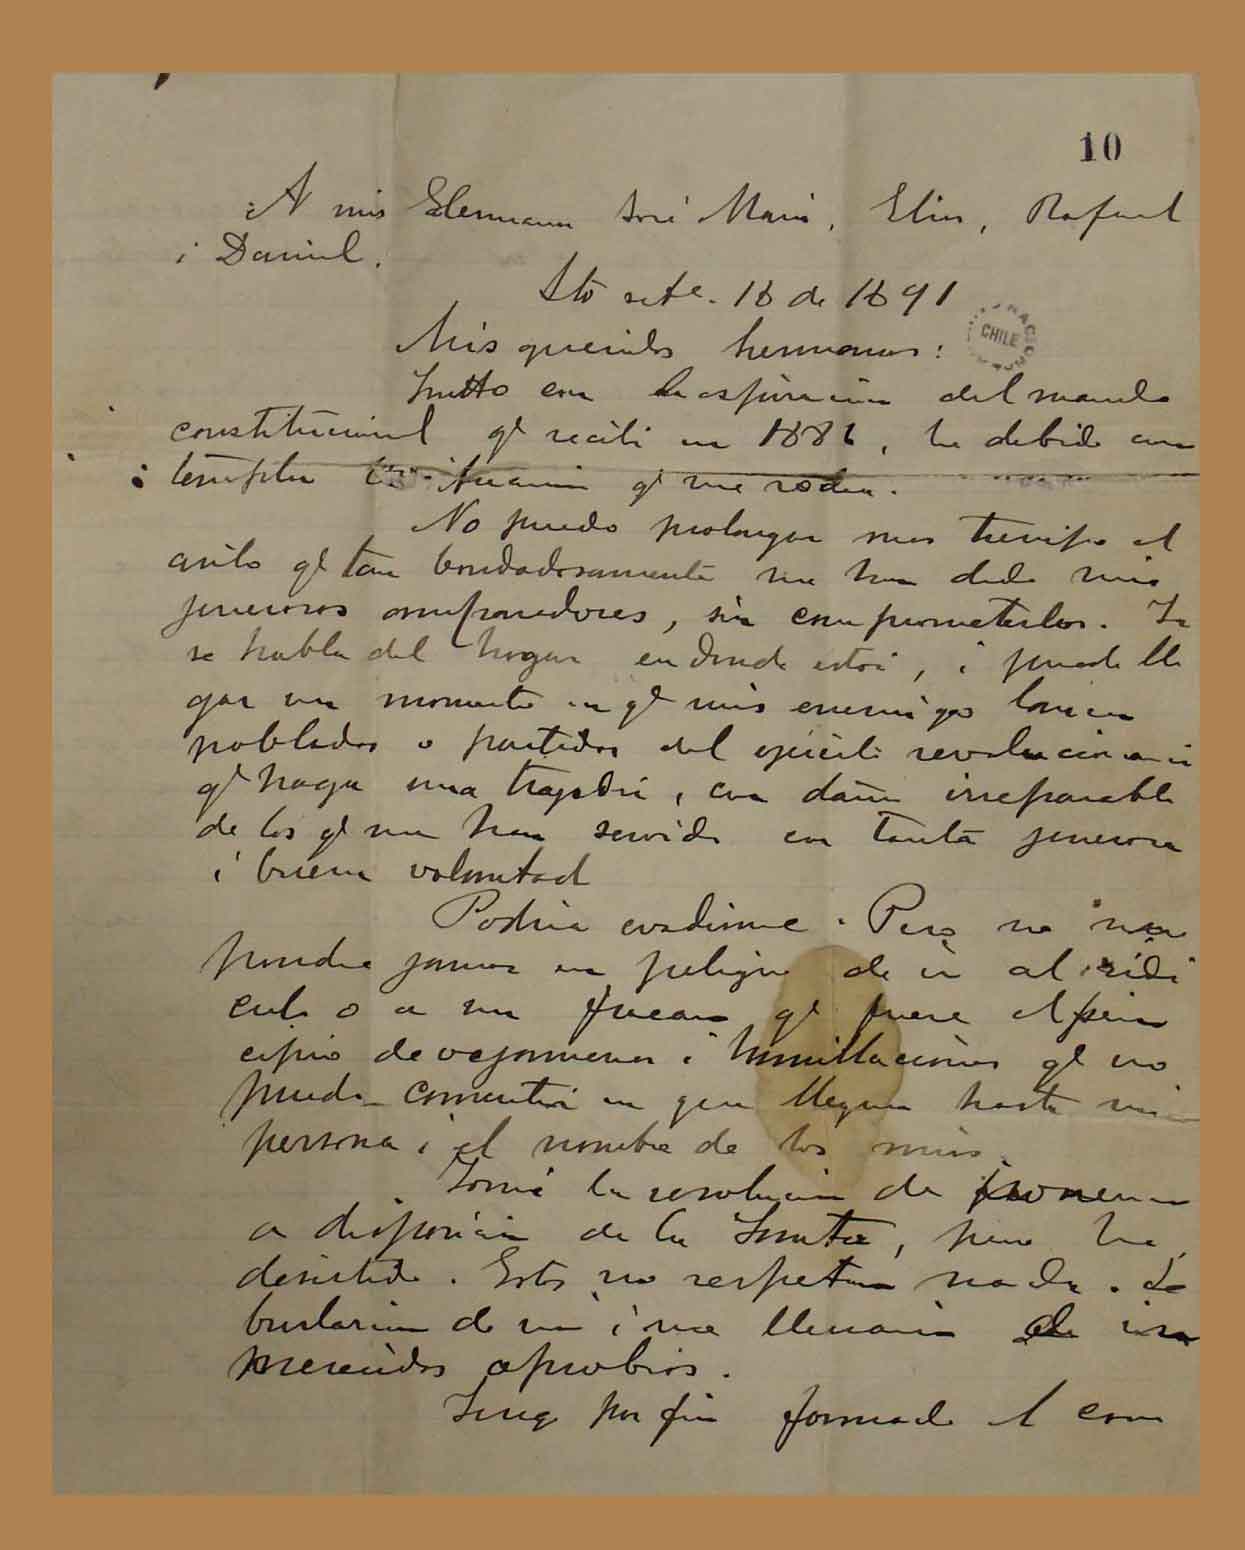 10
A mis Hermanos José Maria, Elias, Rafael
i Daniel.
Stgo sete. 18 de 1891
CHILE
Mis queridos hermanos:
Junto con la espiracion del mando
constitucional qe recibi en 1886, he debido con
templar la situacion qe me rodea.
No puedo prolongar mas tiempo el
asilo qe tan bondadosamente me han dado mis
jenerosos amparadores, sin comprometerlos. Ya
se habla del hogar en donde estoi, i puede lle
gar un momento en qe mis enemigos lancen
pobladas o partidas del ejército revolucionario
qe haga una trajedia, con daño irreparable
de los qe me han servido con tanta jenerosa
i buena voluntad
Podria evadirme. Pero no me
pondre jamas en peligro de ir al ridi
culo o a un fracaso qe fuere el prin
cipio de vejamenes i humillaciones qe no
puedo consentir en que lleguen hasta mi
persona i el nombre de los mios.
Tomé la resolucion de ponerme
a disposicion de la Junta, pero he
desistido. Estos no respetan nada. Se
burlarian de mi i me llenarian de in
merecidos oprobios.
Tengo por fin formado el con